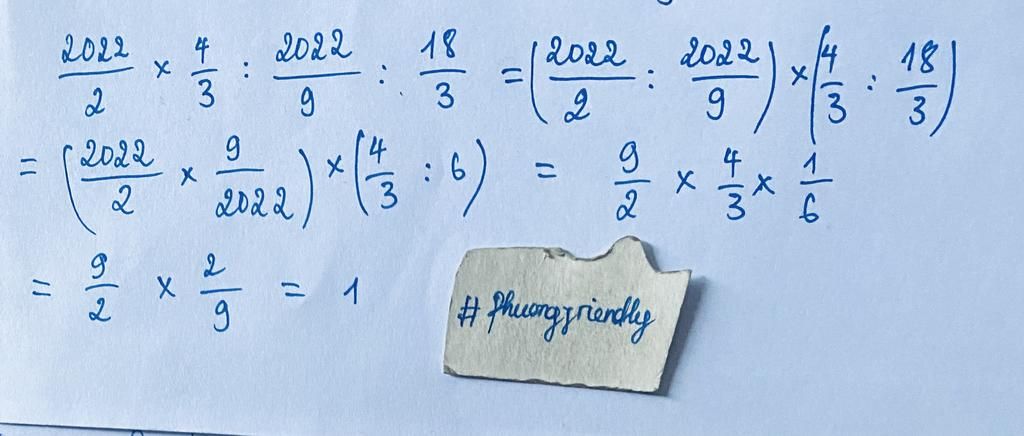 2022/2 × 4/3 : 2022/9 : 18/3 = (2022/2 : 2022/9) × (4/3 : 18/3)
= (2022/2 × 9/2022) × (4/3 : 6) = 9/2 × 4/3 × 1/6
= 9/2 × 2/9 = 1
# phuongfriendly